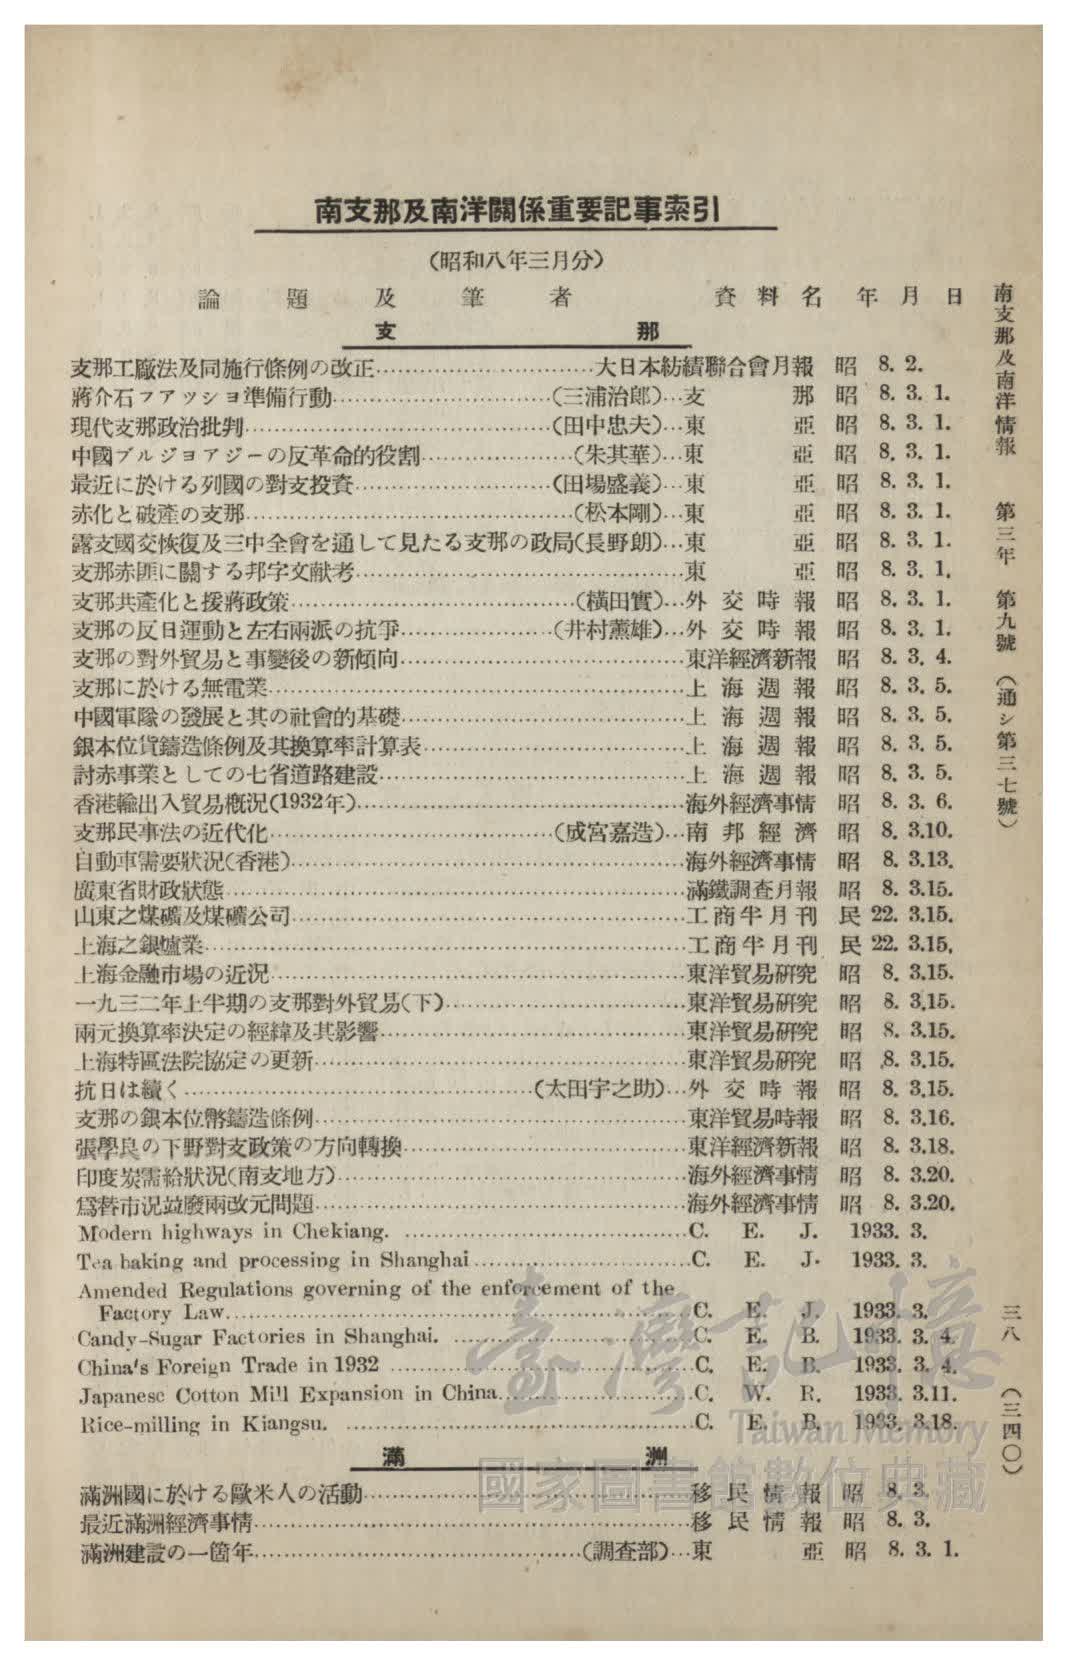 南支那及南洋關係重要記事索引
(昭和八年三月分)
論題及筆者 資料名 年月日
支那
支那工廠法及同施行條例の改正……大日本紡績聯合會月報 昭 8. 2.
蔣介石フアッショ準備行動……(三浦治郎)…支那 昭 8. 3. 1.
現代支那政治批判……(田中忠夫)…東亞 昭 8. 3. 1.
中國ブルジョアジーの反革命的役割……(朱其華)…東亞 昭 8. 3. 1.
最近に於ける列國の對支投資……(田場盛義)…東亞 昭 8. 3. 1.
赤化と破產の支那……(松本剛)…東亞 昭 8. 3. 1.
露支國交恢復及三中全會を通して見たる支那の政局(長野朗)…東亞 昭 8. 3. 1.
支那赤匪に關する邦字文献考……東亞 昭 8. 3. 1.
支那共產化と援蔣政策……(橫田實)…外交時報 昭 8. 3. 1.
支那の反日運動と左右兩派の抗爭……(井村薰雄)…外交時報 昭 8. 3. 1.
支那の對外貿易と事變後の新傾向……東洋經濟新報 昭 8. 3. 4.
支那に於ける無電業……上海週報 昭 8. 3. 5.
中國軍隊の發展と其の社會的基礎……上海週報 昭 8. 3. 5.
銀本位貨鑄造條例及其換算率計算表……上海週報 昭 8. 3. 5.
討赤事業としての七省道路建設……上海週報 昭 8. 3. 5.
香港輸出入貿易槪況(1932年)……海外經濟事情 昭 8. 3. 6.
支那民事法の近代化……(成宮嘉造)…南邦經濟 昭 8. 3.10.
自動車需要狀況(香港)……海外經濟事情 昭 8. 3.13.
廣東省財政狀態……滿鐵調查月報 昭 8. 3.15.
山東之煤礦及煤礦公司……工商半月刊 民 22. 3.15.
上海之銀爐業……工商半月刊 民 22. 3.15.
上海金融市場の近況……東洋貿易硏究 昭 8. 3.15.
一九三二年上半期の支那對外貿易(下)……東洋貿易硏究 昭 8. 3.15.
兩元換算率決定の經緯及其影響……東洋貿易硏究 昭 8. 3.15.
上海特區法院協定の更新……東洋貿易硏究 昭 8. 3.15.
抗日は續く……(太田宇之助)…外交時報 昭 8. 3.15.
支那の銀本位幣鑄造條例……東洋貿易時報 昭 8. 3.16.
張學良の下野對支政策の方向轉換……東洋經濟新報 昭 8. 3.18.
印度炭需給狀況(南支地方)……海外經濟事情 昭 8. 3.20.
爲替市況竝廢兩改元問題……海外經濟事情 昭 8. 3.20.
Modern highways in Chekiang. ……C. E. J. 1933. 3.
Tea baking and processing in Shanghai……C. E. J. 1933. 3.
Amended Regulations governing of the enforcement of the
Factory Law……C. E. J. 1933. 3.
Candy-Sugar Factories in Shanghai. ……C. E. B. 1933. 3. 4.
China's Foreign Trade in 1932 ……C. E. B. 1933. 3. 4.
Japanese Cotton Mill Expansion in China……C. W. R. 1933. 3.11.
Rice-milling in Kiangsu. ……C. E. B. 1933. 3.18.
滿洲
滿洲國に於ける歐米人の活動……移民情報 昭 8. 3.
最近滿洲經濟事情……移民情報 昭 8. 3.
滿洲建設の一箇年……(調查部)…東亞 昭 8. 3. 1.
南支那及南洋情報 第三年 第九號 (通シ第三七號)
三八 (三四〇)
臺灣記憶
Taiwan Memory
國家圖書館數位典藏